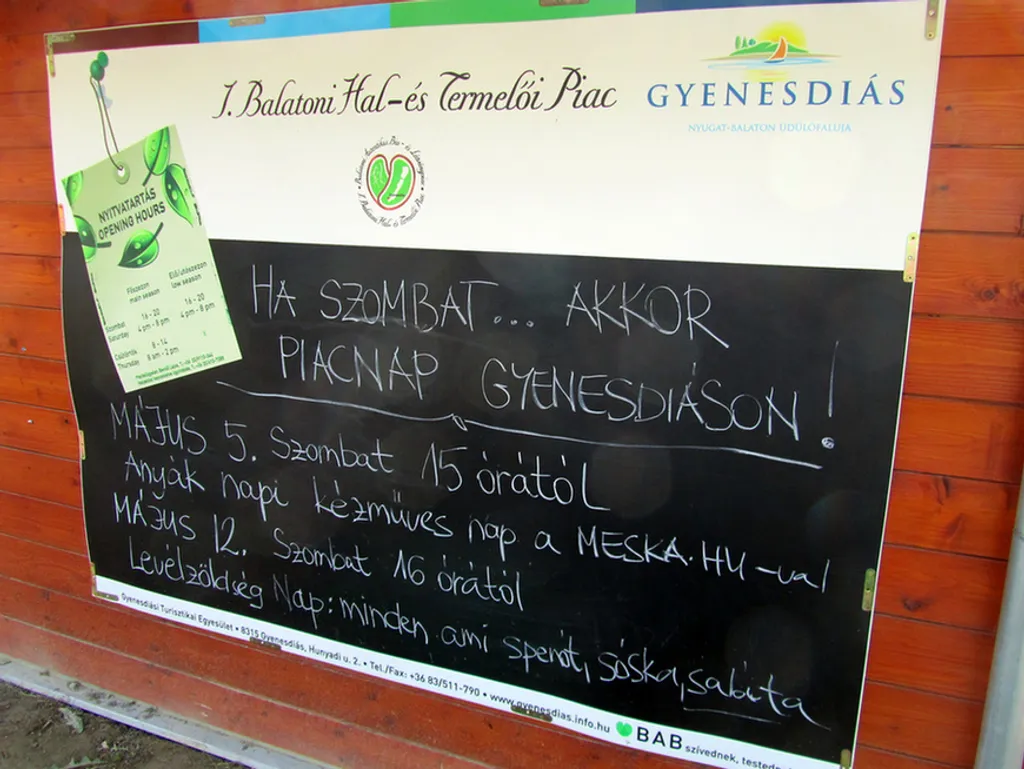 I. Balatoni Hal-és Termelői Piac
GYENESDIÁS
NYUGAT-BALATON ÜDÜLŐFALUJA
I. Balatoni Hal és Termelői Piac
NYITVATARTÁS
OPENING HOURS
Főszezon
main season
Elő/utószezon
low season
Szombat
Saturday
16 - 20
4 pm - 8 pm
16 - 20
4 pm - 8 pm
Csütörtök
Thursday
8 - 14
8 am - 2 pm
HA SZOMBAT... AKKOR
PIACNAP GYENESDIÁSON!
MÁJUS 5. Szombat 15 órától
Anyák napi kézműves nap a MESKA.HU-val
MÁJUS 12. Szombat 16 órától
Levélzöldség Nap: minden ami spenót, sóska, saláta
Gyenesdiási Turisztikai Egyesület • 8315 Gyenesdiás, Hunyadi u. 2. • Tel./Fax: +36 83/511-790 • www.gyenesdias.info.hu BAB szívednek,